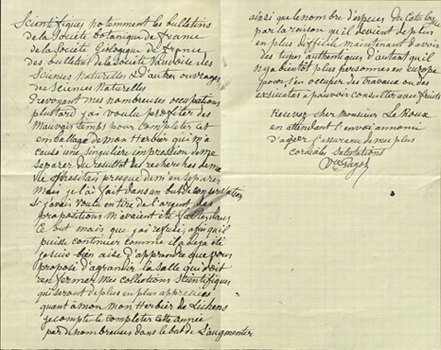 Scientifiques notemment les bulletins
de la Societé botanique de france
de la Société Géologique de France
des bulletin de la Societe Vaudoise des
Sciences Naturelles & d'autres ouvrages
des Sciences Naturelles
Prevoyant mes nombreuses occupations
plustard j'ai voulu profiter des
mauvois temps pour completer cet
emballage de mon Herbier qui me
cause une singulier impression de me
separer du resultat des recherches de ma
vie
mais je l'ai fait dans un but de conservation
si j'avais voulu en tire de l'argent des
propositions m'avaient été faites dans
ce but mais que j'ai refusé afin qu'il
puisse continuer comme il a deja été
je suis bien aise d'apprendre que vous
proposé d'agrandir la salle qui doit
renfermer mes collections scientifiques
qui seront de plus en plus appreciées
quant a mon mon Herbier de Lichens
je compte le completer cette année
par de nombreuses dans le but de l'augmenter
ainsi que le nombre d'especes du Catalogue
par la raison qu'il devient de plus
en plus difficile maintenant d'avoir
des types authentiques d'autant qu'il
n'y a bientôt plus personnes en Europe
pour s'en occuper des travaux ou des
exsiccatas a pouvoir consulter avec fruit
Recevez cher monsieur Le Roux
en attendant l'envoi annoncé
d'agréer l'assurance de mes plus
cordiales salutations
Payot